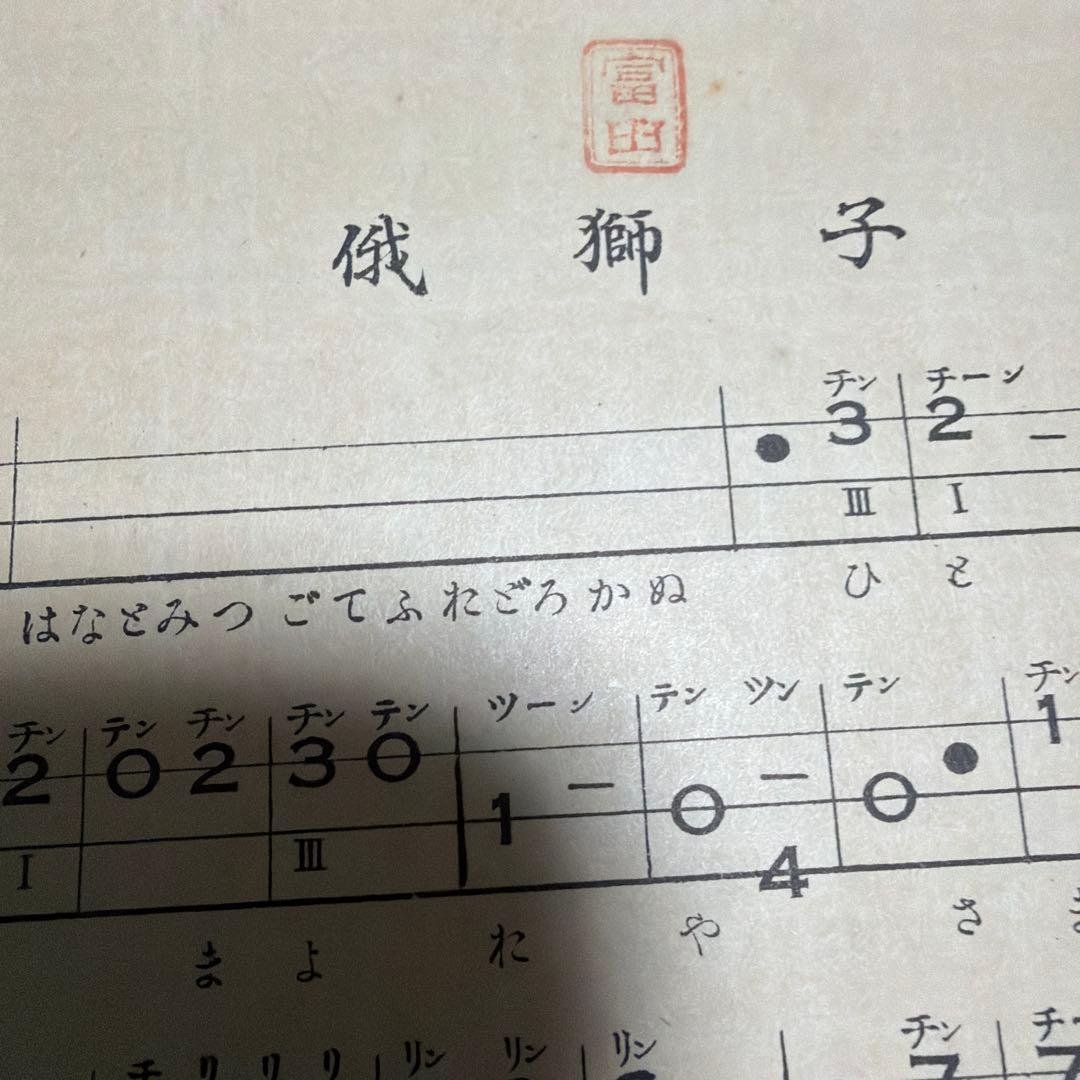 富田
俄獅子
チン チーン
● 3 2 －
Ⅲ Ⅰ
はなとみつ ごてふれどろかぬ ひ と
チン テン チン チン テン ツーン テン ツン テン チン
2 0 2 3 0 1 － 0 － 4 0 ● 1
Ⅰ Ⅲ
ま よ れ や さ
チ リ リ リ リン リン リン チン チー
7 7